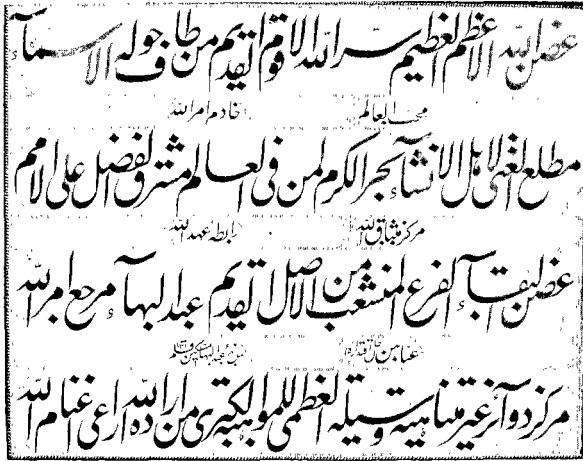 غصن الله الاعظم العظيم سر الله الاقوم القديم من طاف حوله الاسمآء
محب العالم خادم امر الله
مطلع الغنى لاهل الانشاء بحر الكرم لمن فى العالم مشرق الفضل على الامم
مركز ميثاق الله رابطه عهد الله
غصن البقآء الفرع المنشعب من الاصل القديم عبد البهآء مرجع امر الله
مركز دوآئر غير متناهية وسيلة العظمى للموهبة الكبرى من اراده الله راعى اغنام الله